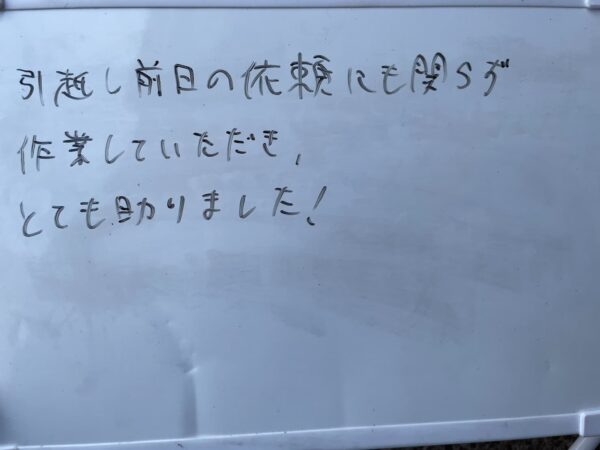 引越し前日の依頼にも関らず
作業していただき、
とても助かりました!